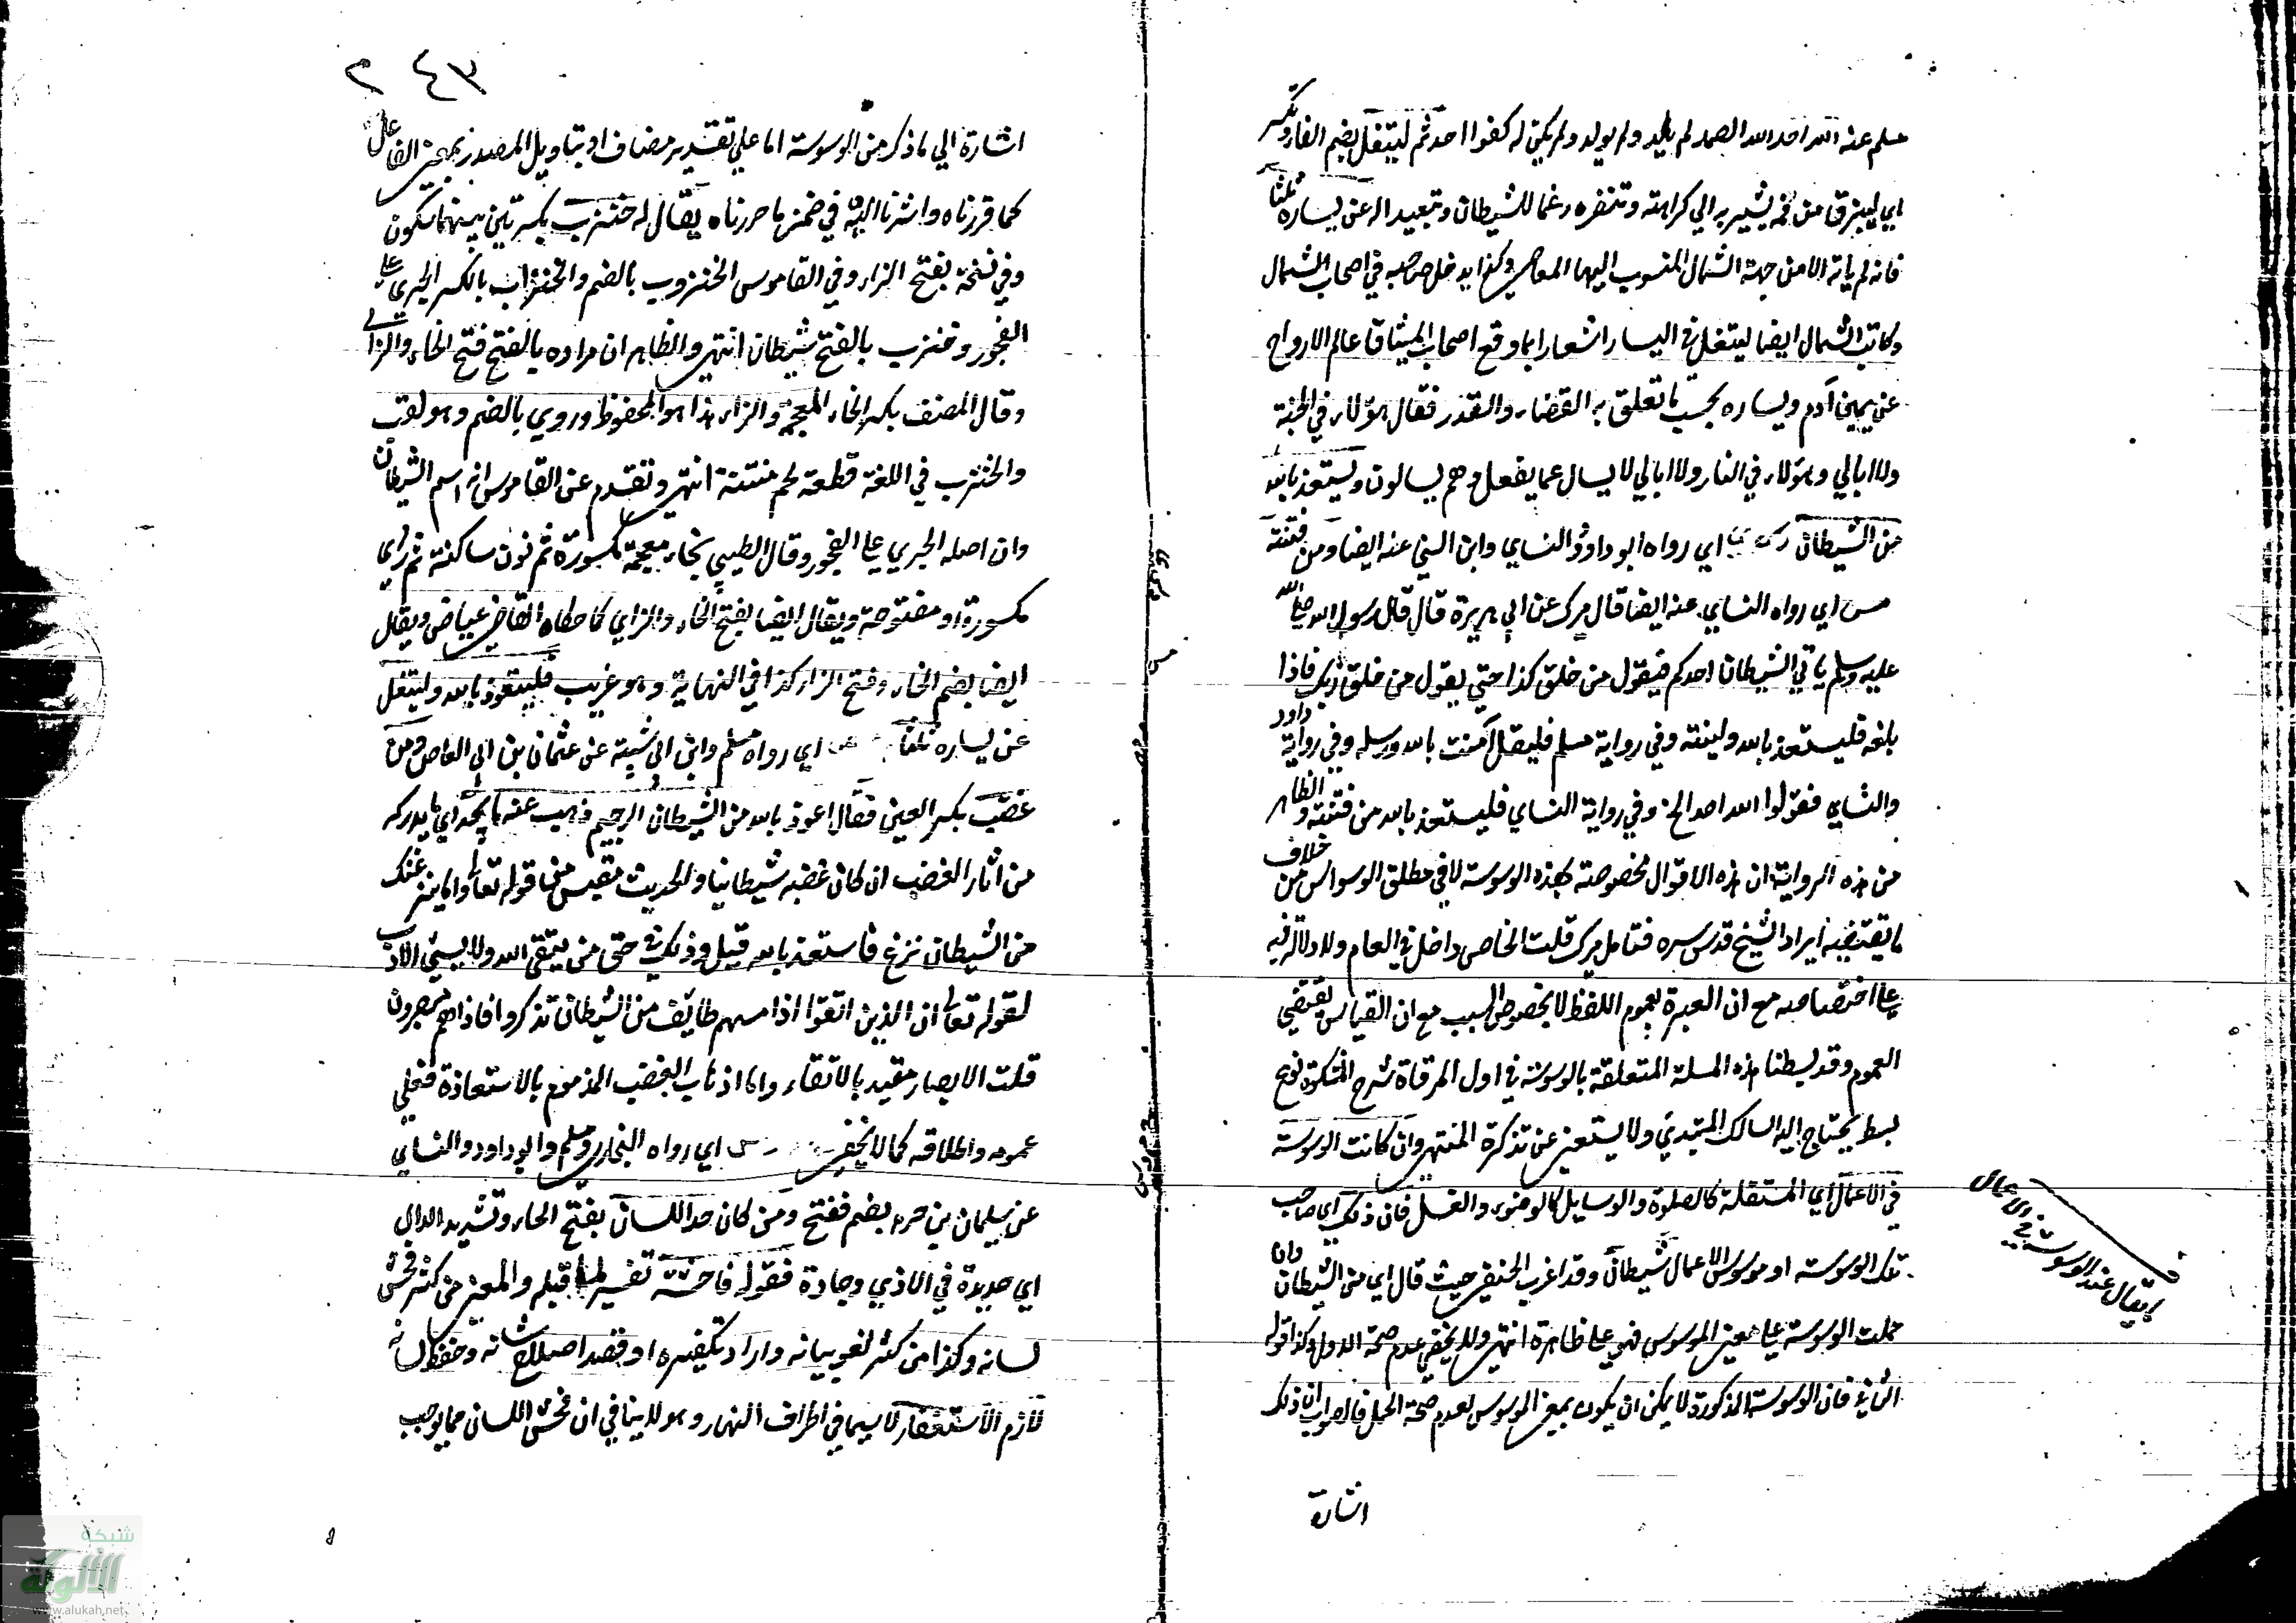 مسلم عنه الله احد الله الصمد لم يلد ولم يولد ولم يكن له كفوا احد ثم ليتفل بضم الفاء وتكسر
اي ليبزق من فمه يشير به الي كراهته وتنفره رغما للشيطان وتبعيدا له عن يساره ثلثا
فانه لم ياته الا من جهة الشمال المنسوب اليها المعاصي وكذا يدخل صاحبه في اصحاب الشمال
وكاتب الشمال ايضا ليتفل في اليسار اشعارا بما وقع اصحاب الميثاق عالم الارواح
عن يمين آدم ويساره بحسب ما تعلق به القضاء والقدر فقال هؤلاء في الجنة
ولا ابالي وهؤلاء في النار ولا ابالي لا يسال عما يفعل وهم يسالون وليستعذ بالله
من الشيطان اي رواه ابو داود والنساي وابن السني عنه ايضا ومن فتنته
س اي رواه النساي عنه ايضا قال ميرك عن ابي هريرة قال قال رسول الله صلى الله
عليه وسلم ياتي الشيطان احدكم فيقول من خلق كذا حتي يقول من خلق ربك فاذا
بلغه فليستعذ بالله ولينته وفي رواية مسلم فليقل آمنت بالله ورسله وفي رواية داود
والنساي فقولوا الله احد الخ وفي رواية النساي فليستعذ بالله من فتنته والظاهر
من هذه الرواية ان هذه الاقوال مخصوصة بهذه الوسوسة لا في مطلق الوسواس من خلاف
ما يقتضيه ايراد الشيخ قدس سره فتامل ميرك قلت الخاص داخل في العام ولا دلالة فيه
علي اختصاصه مع ان العبرة بعموم اللفظ لا بخصوص السبب مع ان القياس يقتضي
العموم وقد بسطنا هذه المسلة المتعلقة بالوسوسة في اول المرقاة شرح المشكوة نوع
بسط يحتاج اليه السالك المبتدي ولا يستغني عن تذكرة المنتهي وان كانت الوسوسة
في الاعمال اي المستقلة كالصلوة والوسايل كالوضوء والغسل فان ذلك اي صاحب
تلك الوسوسة او موسوس الاعمال شيطان وقد اغرب الحنفي حيث قال اي من الشيطان وان
حملت الوسوسة علي معني الموسوس فهو علي ظاهره انتهي ولا يخفي عدم صحة الاول وكذا قوله
الثاني فان الوسوسة المذكورة لا يمكن ان يكون بمعني الموسوس لعدم صحة الحمل فالصواب ان ذلك
اشارة
يقال عند الوسوسة في الاعمال
٢٤٣
اشارة الي ما ذكر من الوسوسة اما علي تقدير مضاف او بتاويل المصدر بمعني الفاعل
كما قررناه واشرنا اليه في ضمن ما حررناه يقال له خنزب بكسرتين بينهما سكون
وفي نسخة بفتح الزاء وفي القاموس الخنزوب بالضم والخنزاب بالكسر الجري علي
الفجور وخنزب بالفتح شيطان انتهي والظاهر ان مراده بالفتح فتح الخاء والزاي
وقال المصنف بكسر الخاء المعجمة والزاء هذا هو المحفوظ وروي بالضم وهو لقب
والخنزب في اللغة قطعة لحم منتنة انتهي وتقدم عن القاموس انه اسم الشيطان
وان اصله الجري علي الفجور وقال الطيبي بخاء معجمة مكسورة ثم نون ساكنة ثم زاي
مكسورة او مفتوحة ويقال ايضا بفتح الخاء والزاي كما حكاه القاضي عياض ويقال
ايضا بضم الخاء وفتح الزاء كذا في النهاية وهو غريب فليتعوذ بالله وليتفل
عن يساره ثلثا اي رواه مسلم وابن ابي شيبة عن عثمان بن ابي العاص ومن
غضب بكسر العين فقال اعوذ بالله من الشيطان الرجيم ذهب عنه ما يجد اي ما يدركه
من اثار الغضب ان كان غضبه شيطانيا والحديث مقتبس من قوله تعالي واما ينزغنك
من الشيطان نزغ فاستعذ بالله قيل وذلك في حق من يتقي الله ولا يسيئ الادب
لقوله تعالي ان الذين اتقوا اذا مسهم طائف من الشيطان تذكروا فاذا هم مبصرون
قلت الابصار مقيد بالاتقاء واما اذهاب الغضب المذموم بالاستعاذة فعلي
عمومه واطلاقه كما لا يخفي س اي رواه البخاري ومسلم وابو داود والنساي
عن سليمان بن صرد بضم ففتح ومن كان حد اللسان بفتح الحاء وتشديد الدال
اي حديدة في الاذي وحادة فقوله فاحشه تفسير لما قبله والمعني من كثر فحش
لسانه وكذا من كثر لغو بيانه واراد تكفيره او قصد اصلاح شانه وحفظ لسانه
لازم الاستغفار لا سيما في اطراف النهار وهو لا ينافي ان فحش اللسان مما يوجب
شبكة
الألوكة
www.alukah.net